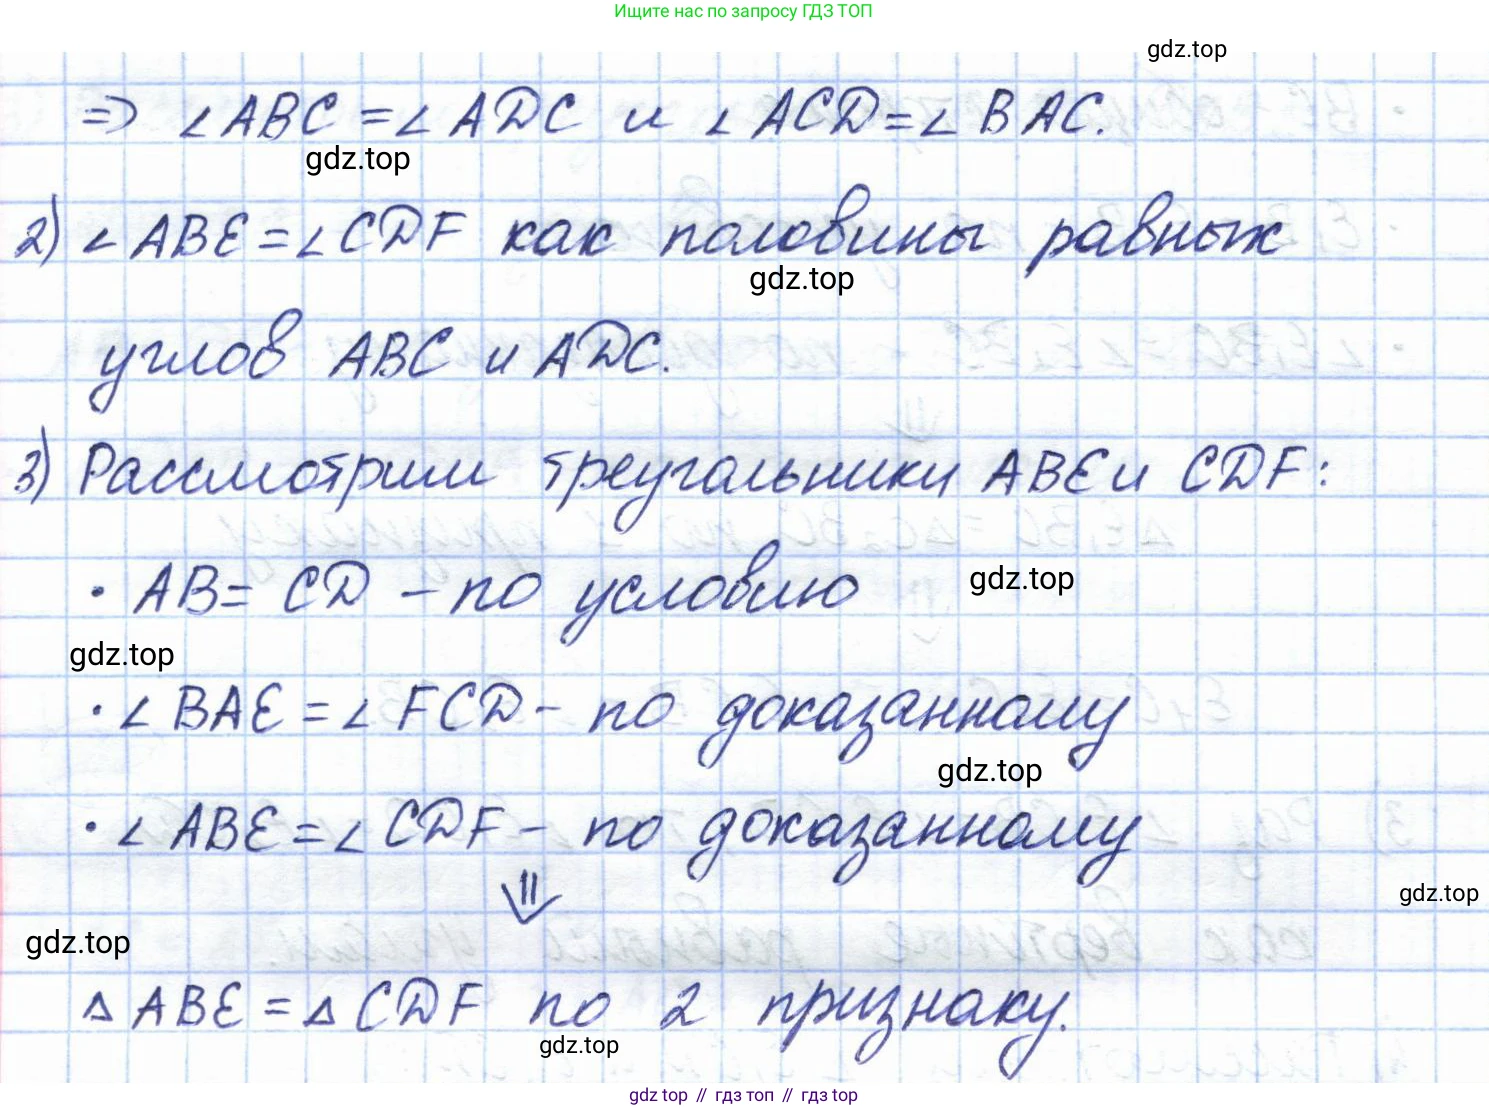 Ищите нас по запросу ГДЗ ТОП
gdz.top
⇒ ∠ABC = ∠ADC и ∠ACD = ∠BAC.
gdz.top
2) ∠ABE = ∠CDF как половины равных
gdz.top
углов ABC и ADC.
3) Рассмотрим треугольники ABE и CDF:
• AB = CD – по условию
gdz.top
gdz.top
• ∠BAE = ∠FCD – по доказанному
gdz.top
• ∠ABE = ∠CDF – по доказанному
⇓
gdz.top
gdz.top
△ABE = △CDF по 2 признаку.
gdz.top
gdz top // гдз топ // гдз top